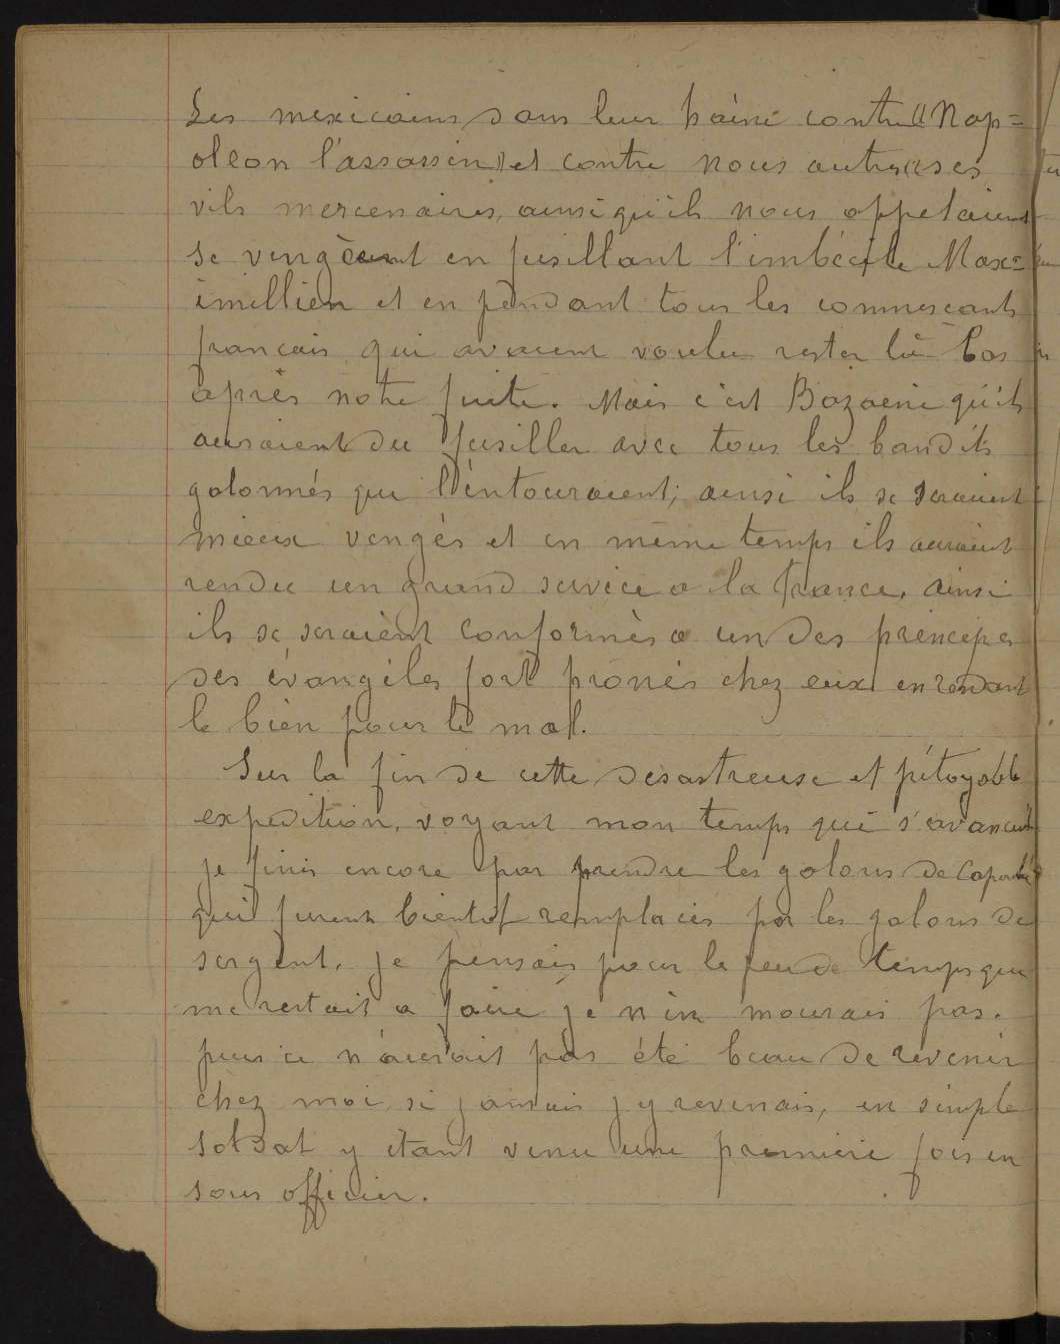 Les mexicains dans leur haine contre « Nap=
oleon l'assassin » et contre nous autres « ses
vils mercenaires, ainsi qu'ils nous appelaient
se vengèrent en fusillant l'imbécile Max=
imillien et en pendant tous les commercants
francais qui avaient voulu rester là-bas
après notre fuite. Mais c'est Bazaene qu'ils
auraient du fusiller avec tous les bandits
galonnés qui l'entouraient; ainsi ils se seraient
mieux vengés et en même temps ils auraient
rendu un grand service a la france. ainsi
ils se seraient conformés a un des principes
des évangiles fort pronés chez eux en rendant
le bien pour le mal.
Sur la fin de cette desastreuse et pitoyable
expedition, voyant mon temps qui s'avancait
je finis encore par prendre les galons de caporal
qui furent bientot remplacés par les galons de
sergent. je pensais pour le peu de temps qui
me restait a faire je n'en mourais pas.
puis ce n'aurait pas été beau de revenir
chez moi, si jamais j'y revenais, en simple
soldat y étant venu une premiere fois en
sous officier.